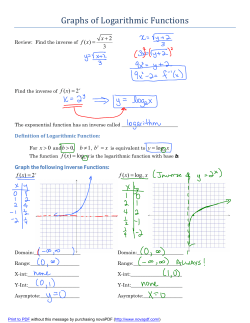 Graphs of Logarithmic Functions
Review: Find the inverse of f(x) = √(x+2) / 3
x = √(y+2) / 3
y = √(x+2) / 3
(3x)² = (√(y+2))²
9x² = y + 2
9x² - 2 = f⁻¹(x)
Find the inverse of f(x) = 2ˣ
x = 2ʸ → y = log₂x
The exponential function has an inverse called logarithm
Definition of Logarithmic Function:
For x > 0 and b > 0, b ≠ 1, bʸ = x is equivalent to y = log_b x
The function f(x) = log_b x is the logarithmic function with base b
Graph the following Inverse Functions:
f(x) = 2ˣ
f(x) = log₂ x (Inverse of y = 2ˣ)
x | y
x | y
Domain: (-∞, ∞)
Domain: (0, ∞)
Range: (0, ∞)
Range: (-∞, ∞)
X-int: none
X-int: (1,0)
Y-Int: (0,1)
Y-Int: none
Asymptote: y = 0
Asymptote: x = 0
Print to PDF without this message by purchasing novaPDF (http://www.novapdf.com/)